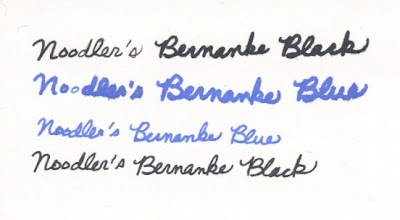 Noodler's Bernanke Black
Noodler's Bernanke Blue
Noodler's Bernanke Blue
Noodler's Bernanke Black